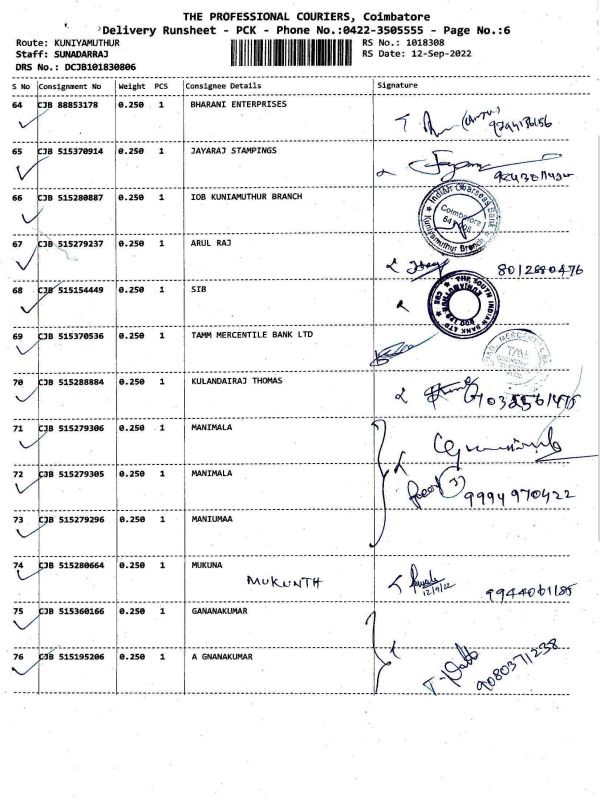 THE PROFESSIONAL COURIERS, Coimbatore
Delivery Runsheet - PCK - Phone No.:0422-3505555 - Page No.:6
Route: KUNIYAMUTHUR
RS No.: 1018308
Staff: SUNADARRAJ
RS Date: 12-Sep-2022
DRS No.: DCJB101830806
S No Consignment No Weight PCS Consignee Details Signature
64 CJB 88853178 0.250 1 BHARANI ENTERPRISES
65 CJB 515370914 0.250 1 JAYARAJ STAMPINGS
66 CJB 515280887 0.250 1 IOB KUNIAMUTHUR BRANCH
Indian Overseas Bank
Coimbatore
Kuniyamuthur Branch
67 CJB 515279237 0.250 1 ARUL RAJ
8012880476
68 CJB 515154449 0.250 1 SIB
THE SOUTH INDIAN BANK LTD
69 CJB 515370536 0.250 1 TAMM MERCENTILE BANK LTD
70 CJB 515288884 0.250 1 KULANDAIRAJ THOMAS
71 CJB 515279306 0.250 1 MANIMALA
72 CJB 515279305 0.250 1 MANIMALA
9994970422
73 CJB 515279296 0.250 1 MANIUMAA
74 CJB 515280664 0.250 1 MUKUNA
MUKUNTH
12/9/22
9944061185
75 CJB 515360166 0.250 1 GANANAKUMAR
76 CJB 515195206 0.250 1 A GNANAKUMAR
9080371238